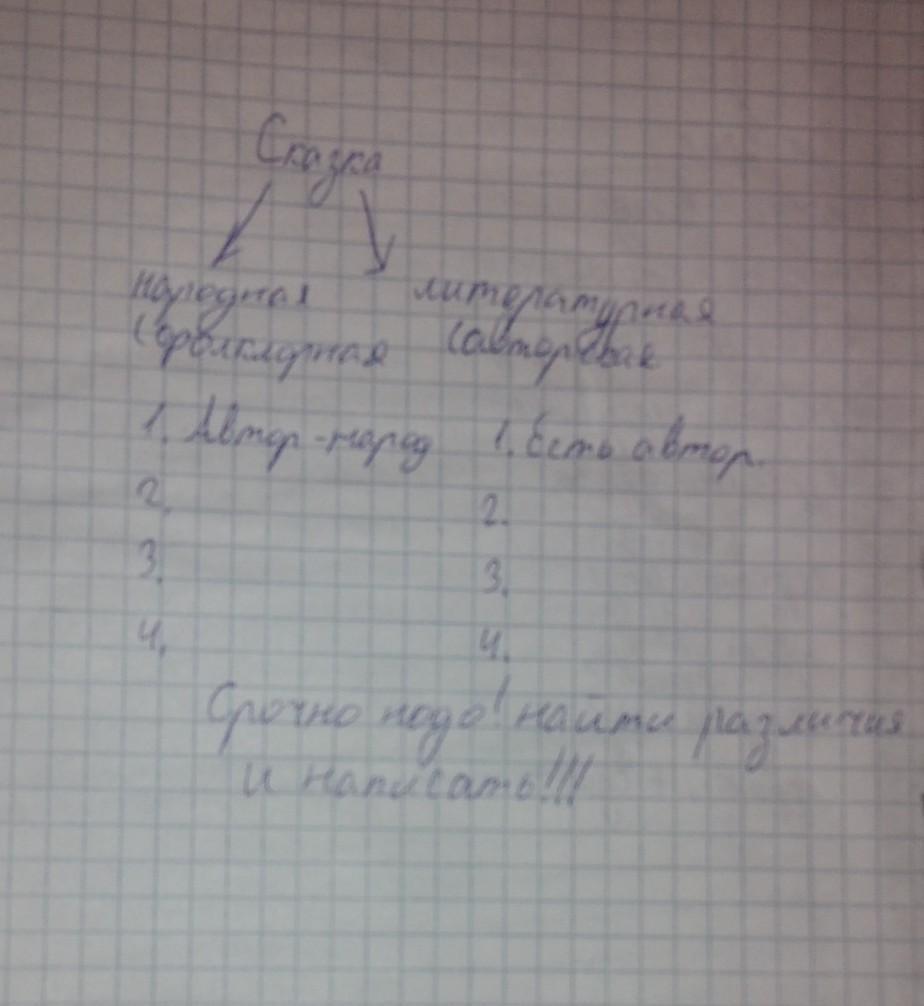 Сказка
народная литературная
(фолклорная (авторская
1. Автор-народ 1. Есть автор.
2. 2.
3. 3.
4. 4.
Срочно надо! найти различия
и написать!!!